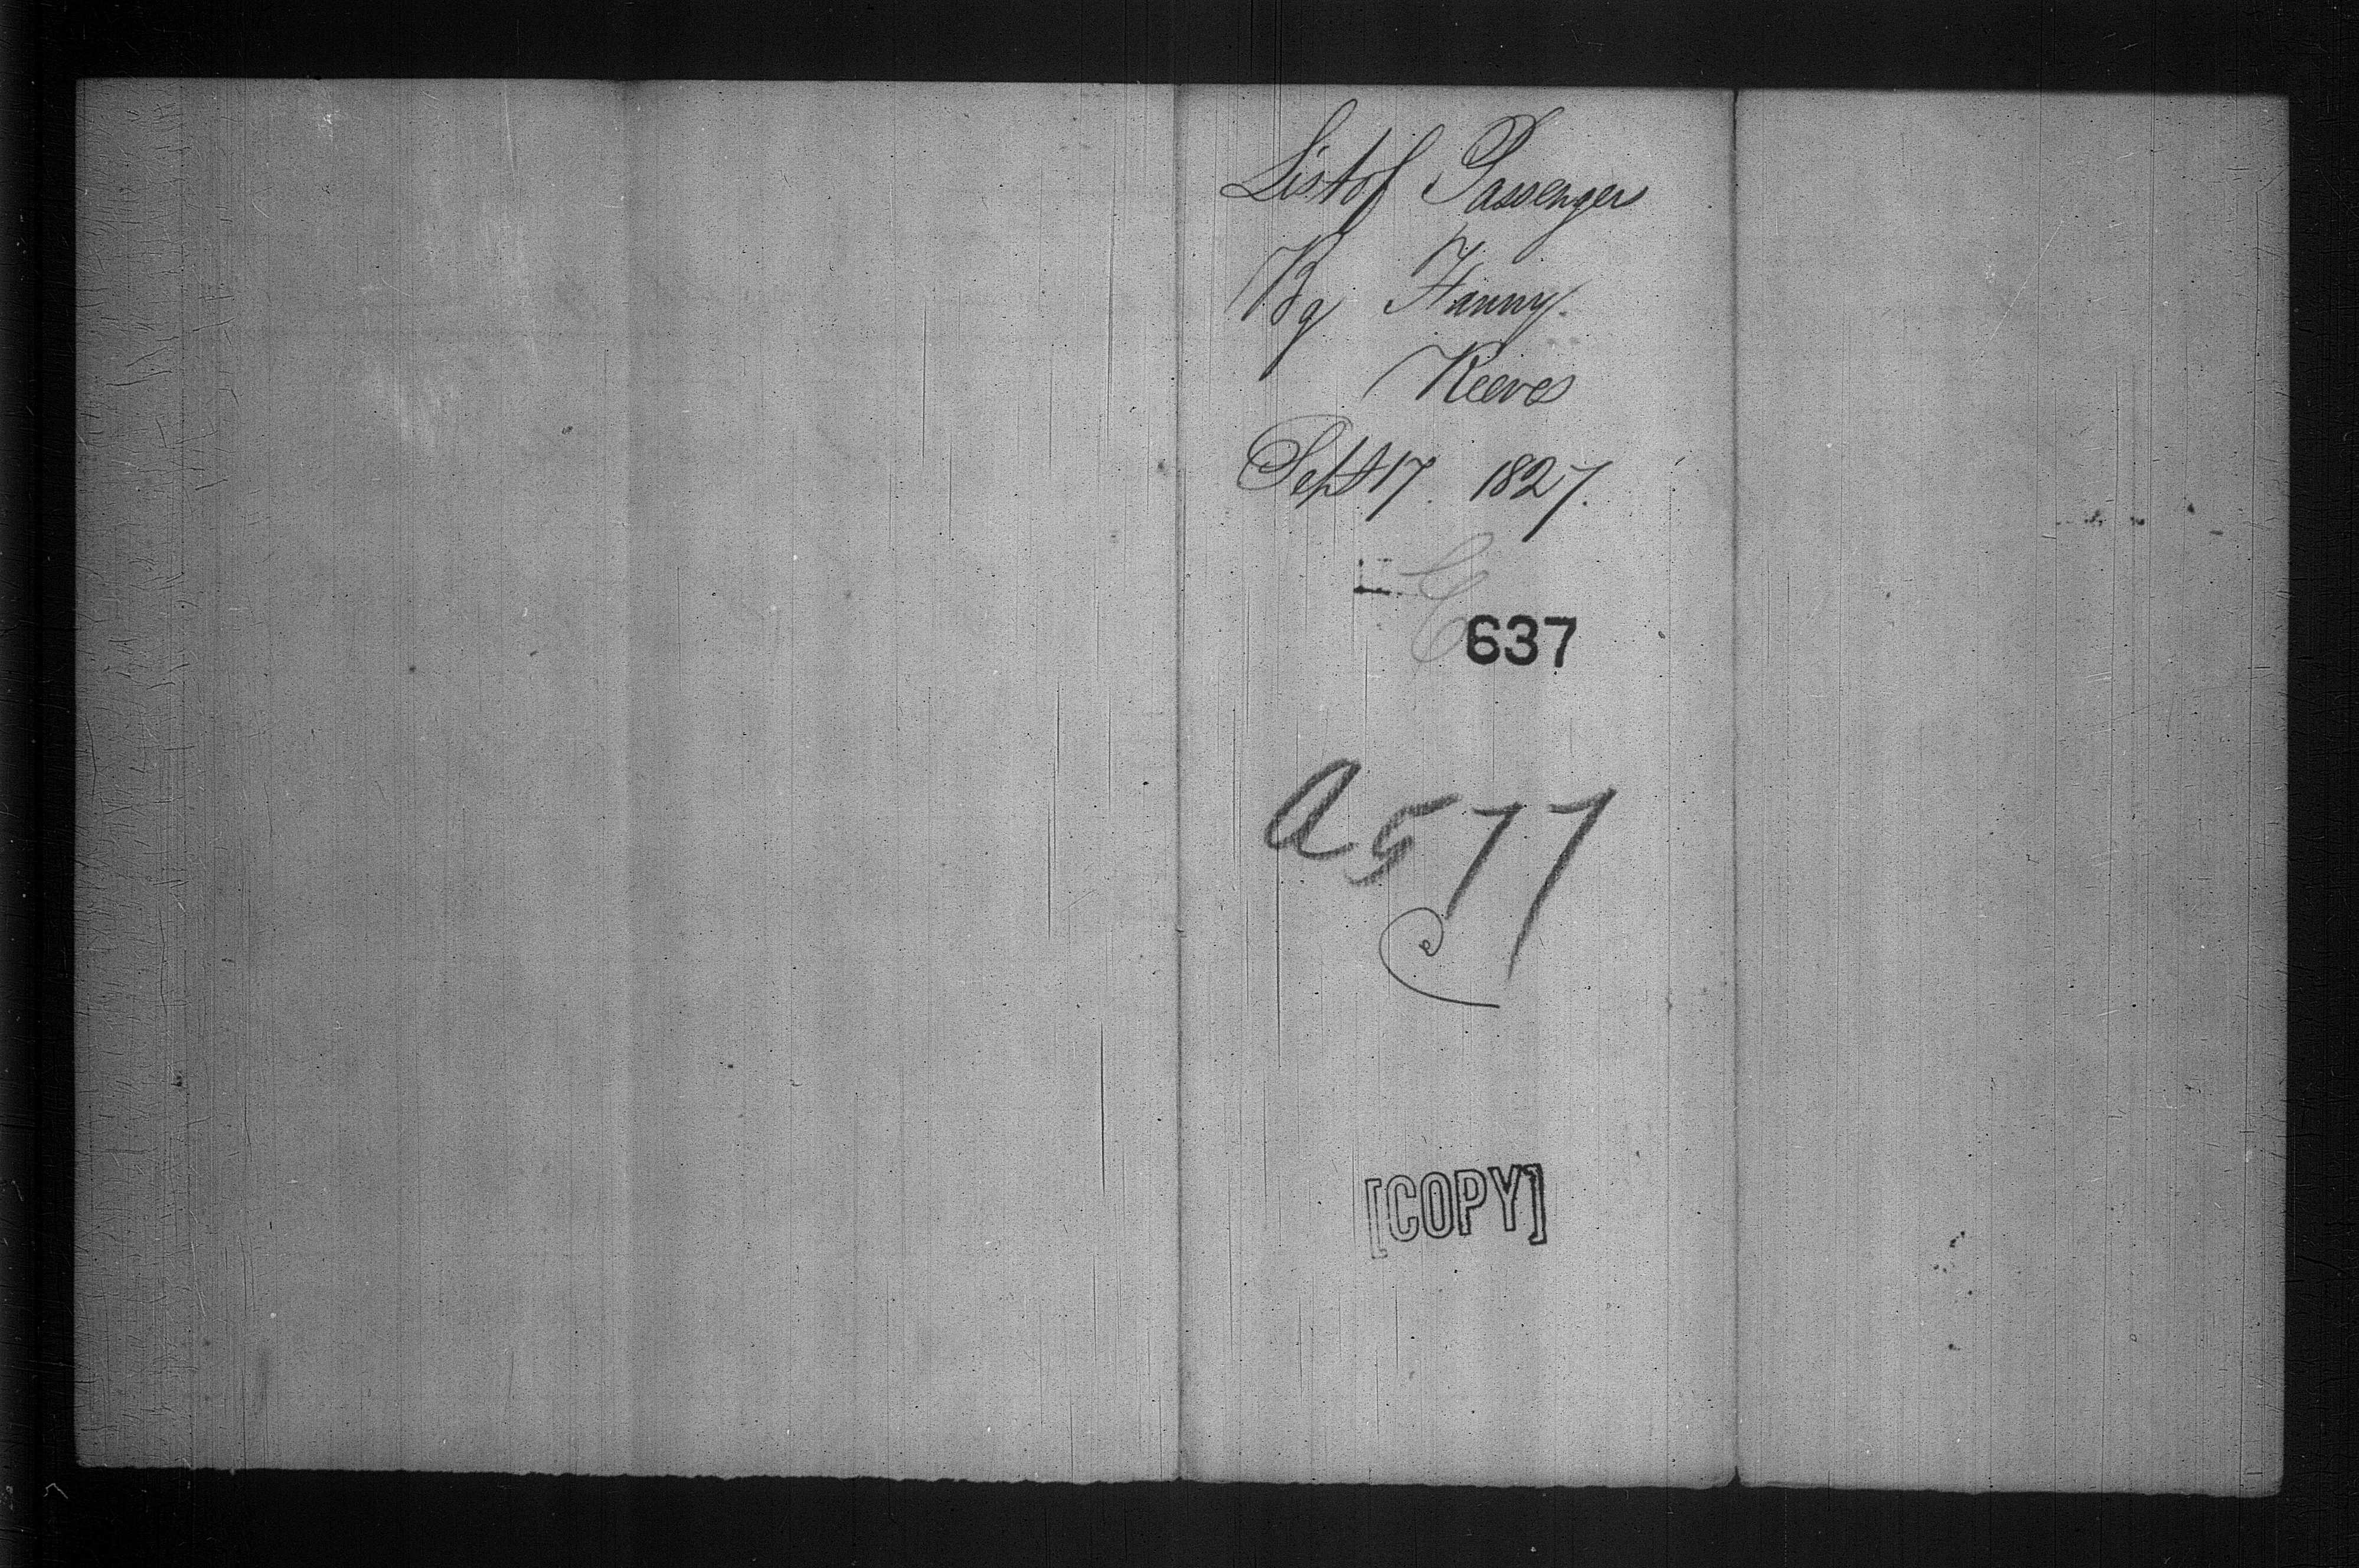 List of Passenger
Bg Fanny.
Reeves
Sept 17. 1827.
C
637
A 577
[COPY]